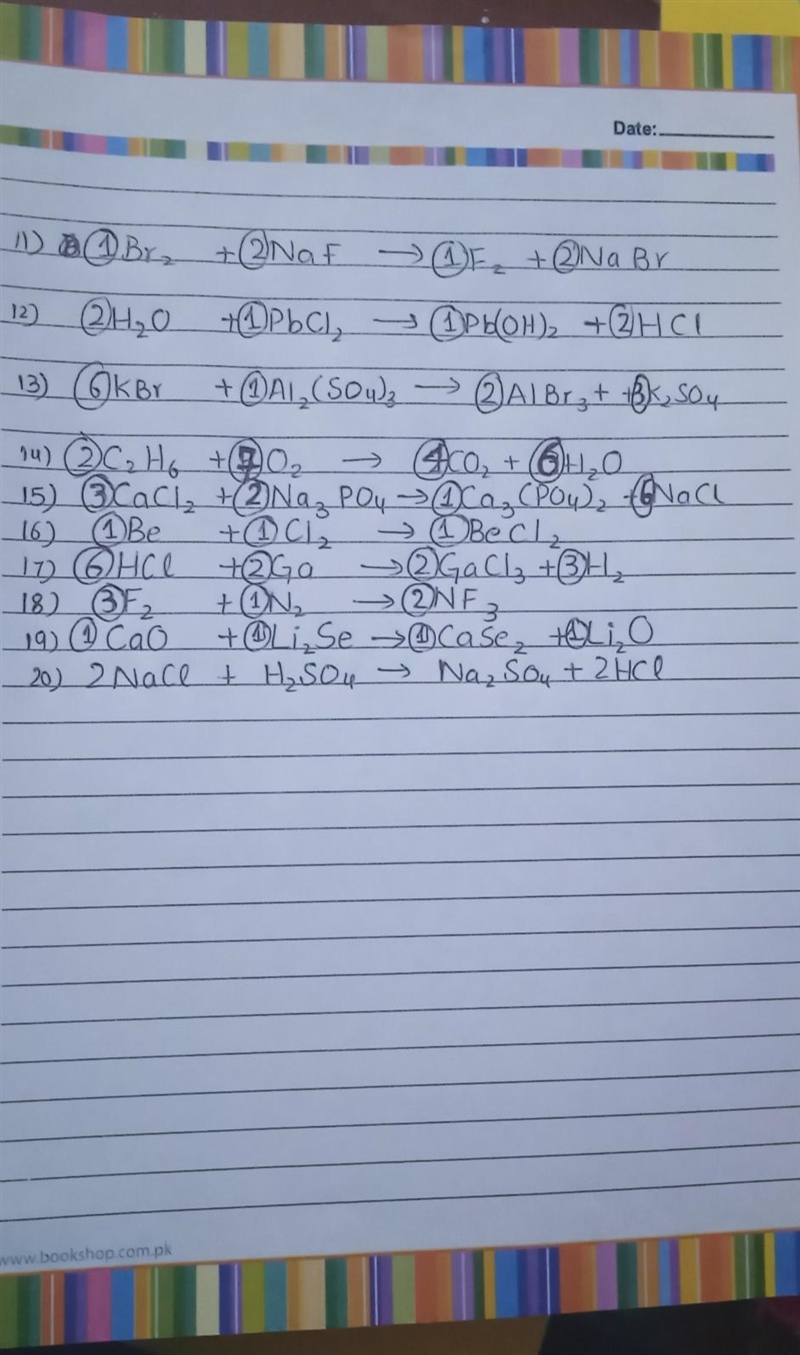 Date:
11) ①Br₂ + ②NaF → ①F₂ + ②NaBr
12) ②H₂O + ①PbCl₂ → ①Pb(OH)₂ + ②HCl
13) ⑥KBr + ①Al₂(SO₄)₃ → ②AlBr₃ + +③K₂SO₄
14) ②C₂H₆ + ⑦O₂ → ④CO₂ + ⑥H₂O
15) ③CaCl₂ + ②Na₃PO₄ → ①Ca₃(PO₄)₂ + ⑥NaCl
16) ①Be + ①Cl₂ → ①BeCl₂
17) ⑥HCl + ②Ga → ②GaCl₃ + ③H₂
18) ③F₂ + ①N₂ → ②NF₃
19) ①CaO + ①Li₂Se → ①CaSe₂ + ①Li₂O
20) 2NaCl + H₂SO₄ → Na₂SO₄ + 2HCl
www.bookshop.com.pk